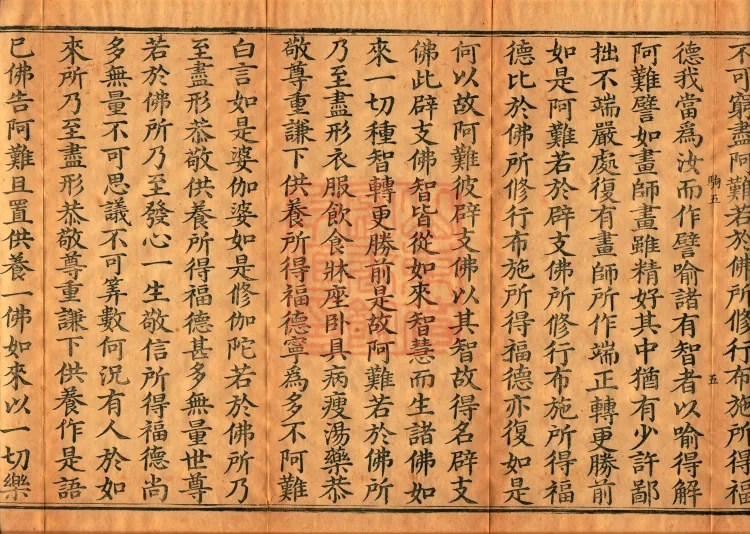 不可窮盡阿難若於佛所修行布施所得福
德我當為汝而作譬喻諸有智者以喻得解
阿難譬如畫師畫雖精好其中猶有少許鄙
拙不端嚴處復有畫師所作端正轉更勝前
如是阿難若於辟支佛所修行布施所得福
德比於佛所修行布施所得福德亦復如是
何以故阿難彼辟支佛以其智故得名辟支
佛此辟支佛智皆從如來智慧而生諸佛如
來一切種智轉更勝前是故阿難若於佛所
乃至盡形衣服飲食牀座卧具病瘦湯藥恭
敬尊重謙下供養所得福德寧為多不阿難
白言如是婆伽婆如是修伽陀若於佛所乃
至盡形恭敬供養所得福德甚多無量世尊
若於佛所乃至發心一生敬信所得福德尚
多無量不可思議不可筭數何況有人於如
來所乃至盡形恭敬尊重謙下供養作是語
已佛告阿難且置供養一佛如來以一切樂
五